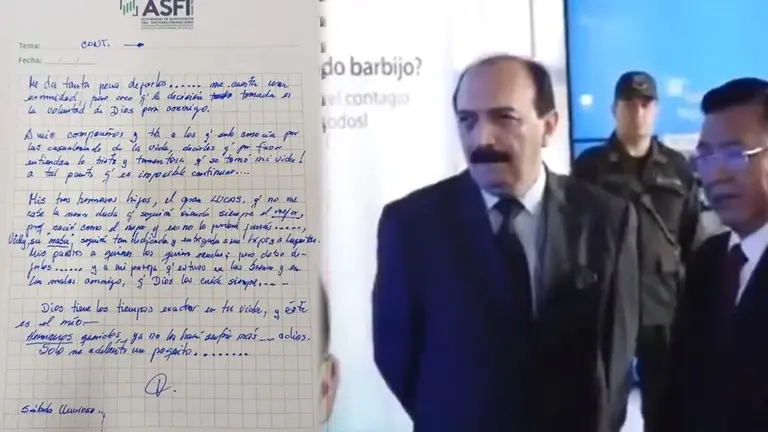 ASFI
AUTORIDAD DE SUPERVISIÓN
DEL SISTEMA FINANCIERO
Tema: CONT.
Fecha: / /
Me da tanta pena dejarlos...... me cuesta una
enormidad, pero creo q' la decisión tomada es
la voluntad de Dios para conmigo.
A mis compañeros y a los q' solo conocía por
las casualidades de la vida, decirles q' por favor
entiendan lo triste y tormentosa q' se tornó mi vida!
a tal punto q' es imposible continuar....
Mis tres hermosos hijos, el gran LUCAS, q' no me
cabe la menor duda q' seguirá siendo siempre el mejor,
nació como el mejor y eso no lo perderá jamás.....,
su mamá, seguirá tan dedicada y entregada a sus hijos
Mis padres a quienes los quiero mucho; pero debo de-
jarlos...... y a mi pareja q' estuvo en las buenas y en
las malas conmigo, q' Dios los cuide siempre...-
Dios tiene los tiempos exactos en tu vida, y éste
es el mío.-
Hermanos queridos, ya no los haré sufrir más... adios.
Solo me adelanto un poquito........
Sábado
do barbijo?
el contagio
odos!